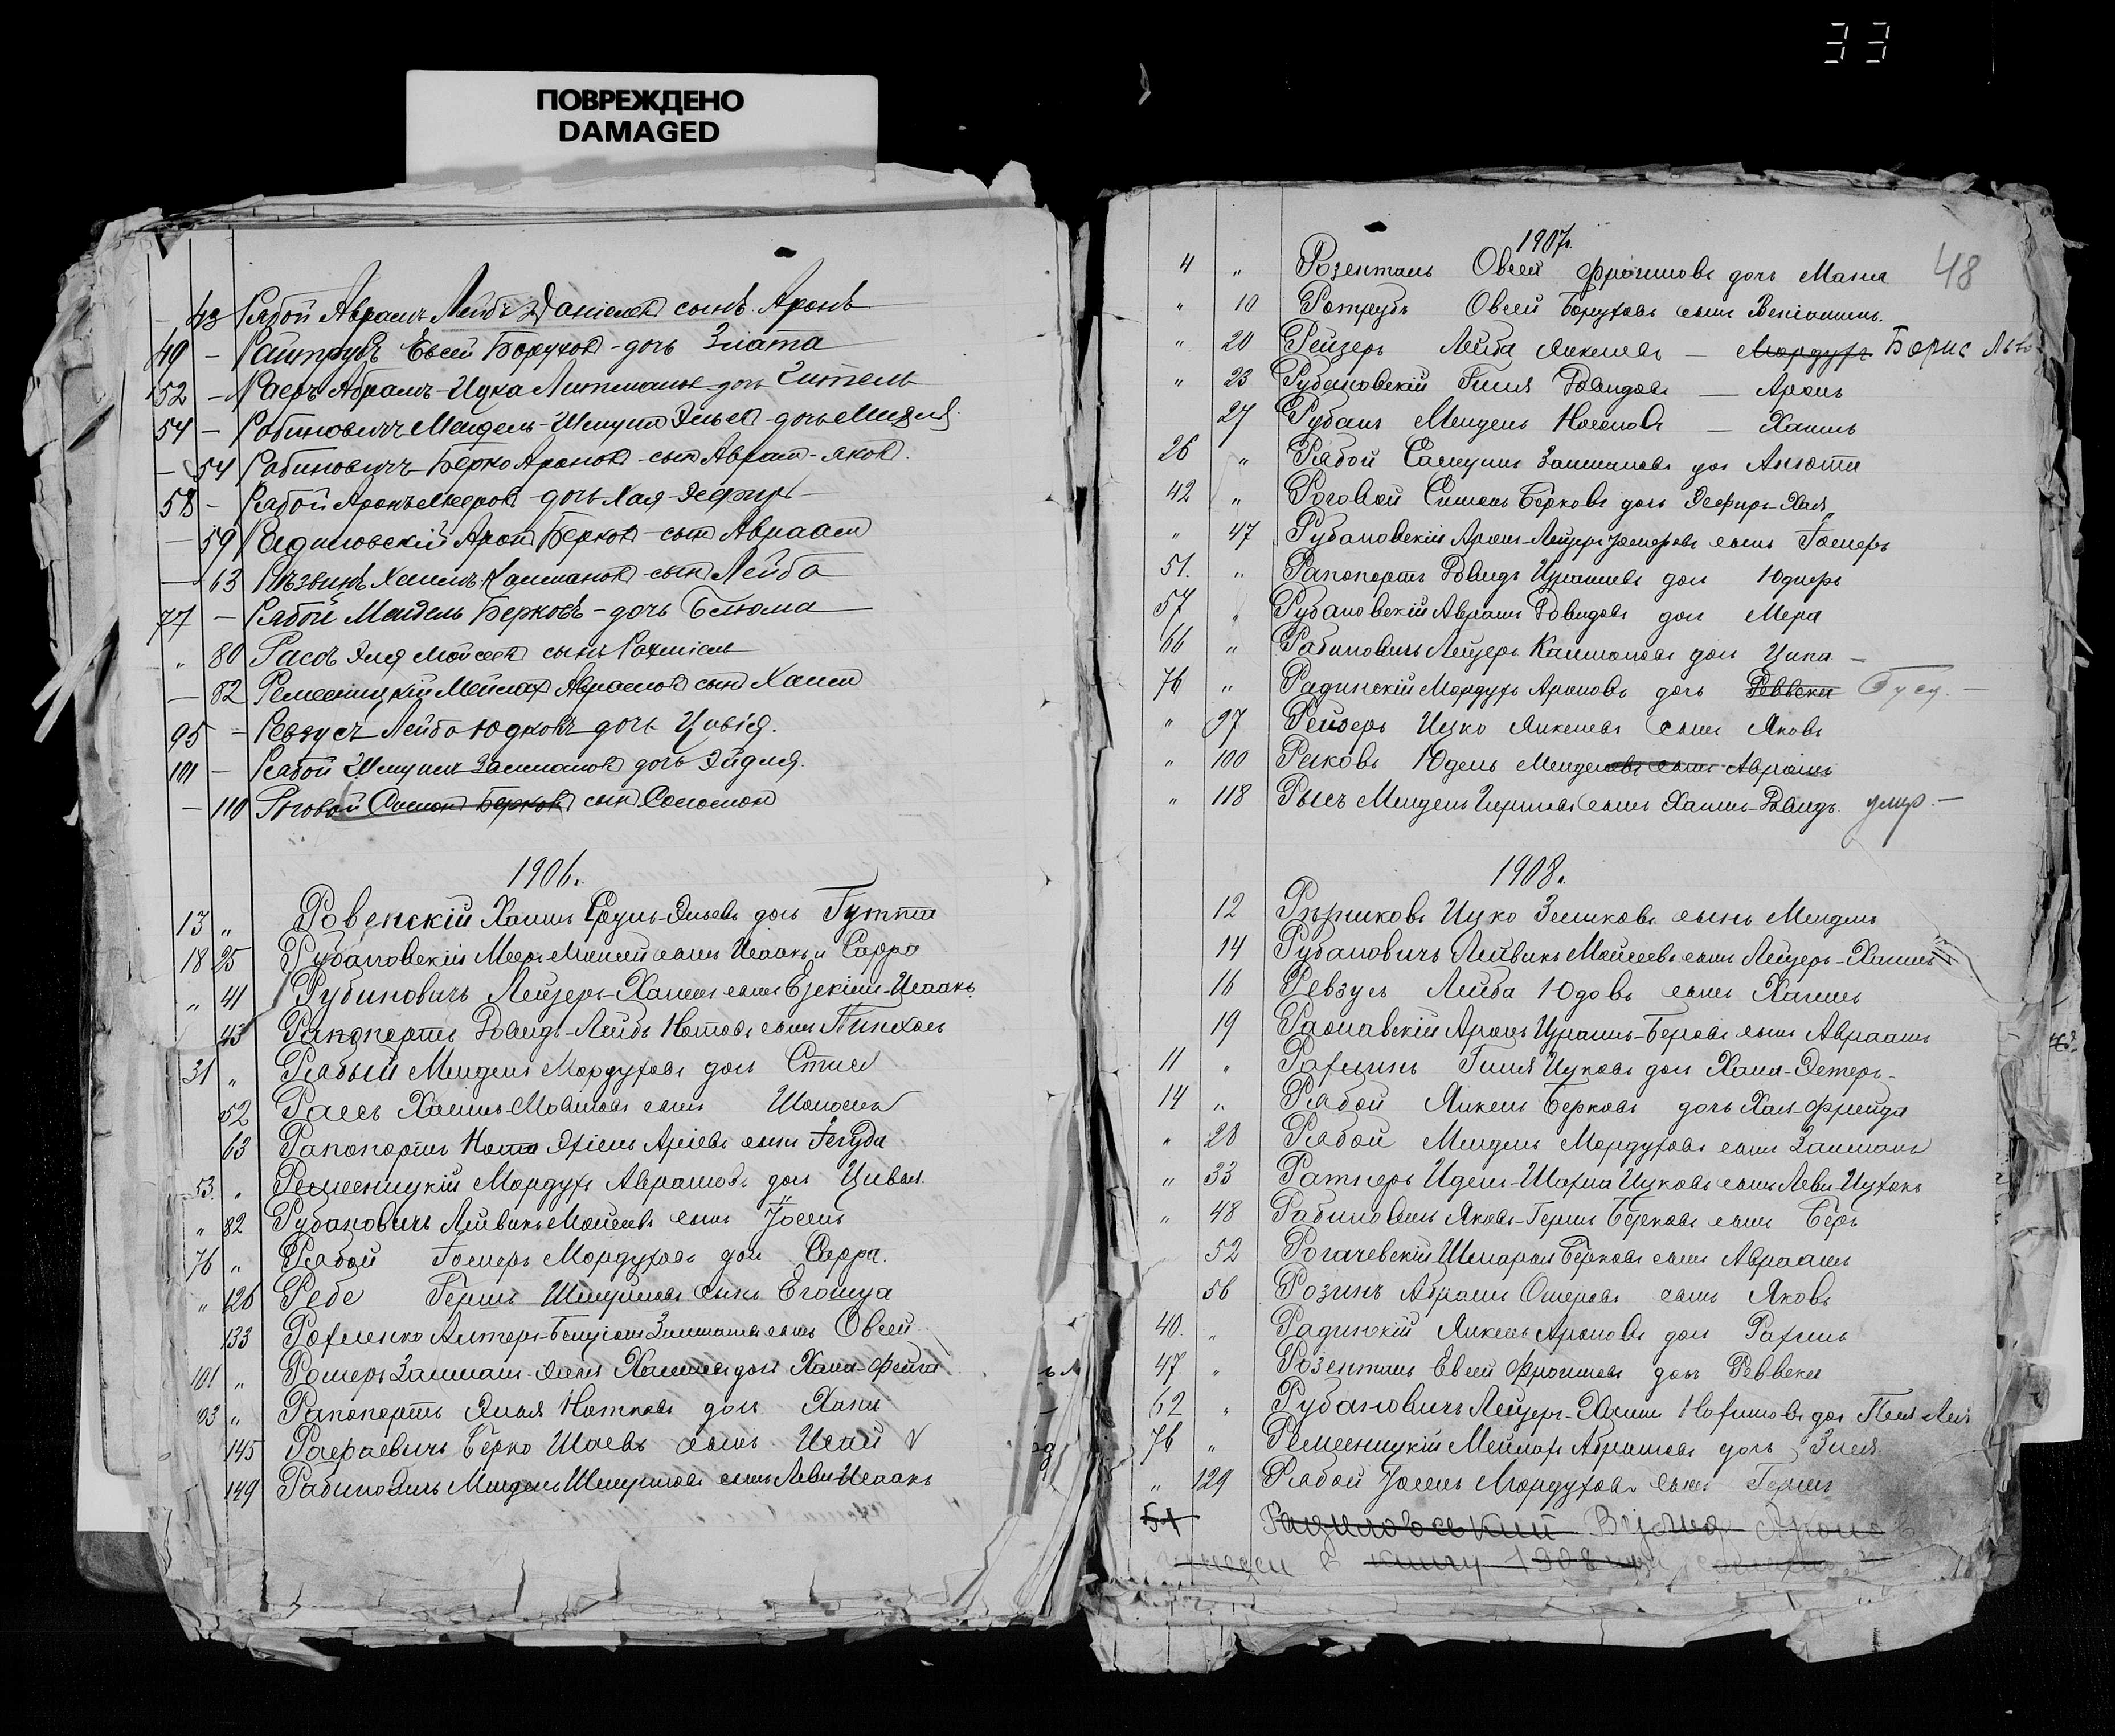 33
ПОВРЕЖДЕНО
DAMAGED
— 43 Рябой Аврамъ Лейбъ Даніелев сынъ Аронъ
49 — Райтрубъ Евсей Борухов - дочь Злата
152 — Раеръ Абрамъ-Ицка Литманов дочь Гитель
54 — Рабиновичъ Мендель-Шмуил Эльев - дочь
— 54 Рабиновичъ Берко Аронов - сын Аврам-Яков.
58 — Рябой Аронъ дочь Хая-Эсфирь
— 59 Радиловскій Арон Берков - сын Авраам
— 63 Хаимъ сын Лейба
77 — Рябой Мендель Берковъ - дочь Блюма
" 80 Расовъ Эля Мойсеев сынъ Рахміель
— 82 Ременицкій Мейлах Аврамов сын Хаим
95 — Ревзусъ Лейба Юдковъ дочь Цовія.
101 — Рябой Шмуил Залманов дочь Эйдля.
— 110 Роговой Симон Берков сын Соломон
1906г.
13 " Ровенскій Хаимъ Сруль-Эльевъ дочь Гутта
18 25 Рубановскій Меер сынъ Исаакъ и Сарра
" 41 Рубиновичъ Лейзеръ-Хаимов сынъ Езекіиль-Исаакъ
43 Рапопортъ Довидъ-Лейбъ Нотовъ сынъ Пинхосъ
31 " Рябый Мендель Мордуховъ дочь
52 Расъ Хаимъ Мовшовъ сынъ
63 Рапопортъ Нота Эхіель Аріевъ сынъ Іегуда
53. " Ременицкій Мордухъ Аврамовъ дочь Цивья.
" 82 Рубановичъ Лейвикъ Мойсеевъ сынъ Іосель
76 " Рябой Гомеръ Мордуховъ дочь Сарра.
" 126 Ребе Гершъ Шмулевъ сынъ Егошуа
133 Рохленко Алтеръ-Беніомин Залманов сынъ Овсей
101 " Ромеръ Залман-Хаимов дочь Хана-Фейга
93 " Рапопортъ Эльля Нотковъ дочь Хана
145 Рафаевичъ Берко Шаевъ сынъ Исай
149 Рабиновичъ Мендель Шмуилов сынъ Леви-Исаакъ
48
1907г.
4 " Розенталь Овсей Фроимовъ дочь Маня
" 10 Ротрубъ Овсей Боруховъ сынъ Веніоминъ.
" 20 Рейзеръ Лейба Янкелевъ — Мордухъ Борис Льво
" 23 Рубановскій Гиля Довидовъ — Аронъ
27 Рубанъ Мендель Носоновъ — Хаимъ
26 " Рябой Самуилъ Залмановъ дочь Анюта
42 " Роговой Симонъ Берковъ дочь Эсфирь-Хая
" 47 Рубановскій Аронъ-Лейзеръ сынъ Гомеръ
51. " Рапопортъ Довидъ дочь Юдперъ
57 " Рубановскій Аврамъ Довидовъ дочь Мера
66 " Рабиновичъ Лейзеръ Калмановъ дочь Ципа —
76 " Радинскій Мордухъ Ароновъ дочь Реввека —
" 97 Рейзеръ Ицко Янкелевъ сынъ Яковъ
" 100 Рыковъ Юдель Менделевъ сынъ Аврамъ
" 118 Рысъ Мендель Гершевъ сынъ Хаимъ-Давидъ. умер.—
1908г.
12 Рѣзниковъ Ицко Зеликовъ сынъ Мендель
14 Рубановичъ Лейвикъ Мойсеевъ сынъ Лейзеръ-Хаимъ
16 Ревзусъ Лейба Юдовъ сынъ Хаимъ
19 Аронъ Цраилъ-Беровъ сынъ Авраамъ
11 " Рахлинъ Гиля Ицковъ дочь Хана-Эстеръ-
14 " Рябой Янкель Берковъ дочь Хая-Фрейда
" 28 Рябой Мендель Мордуховъ сынъ Залманъ
" 33 Ратнеръ Идель-Шахна Ицковъ сынъ Леви-Ицхокъ
" 48 Рабиновичъ Яковъ-Гершъ Берковъ сынъ Беръ
52 Рогачевскій Шмарья Берковъ сынъ Авраамъ
56 Розинъ Абрамъ Ошеровъ сынъ Яковъ
40. " Радинскій Янкель Ароновъ дочь Рахиль
47 " Розенталь Евсей Фроимовъ дочь Реввека
62 " Рубановичъ Лейзеръ-Хаимъ Нохимовъ дочь
76 " Ременицкій Мейлахъ Абрамовъ дочь Злея
" 129 Рябой Іосель Мордуховъ сынъ Гершъ
51 Радиловський Аронов
в книгу 1908 года